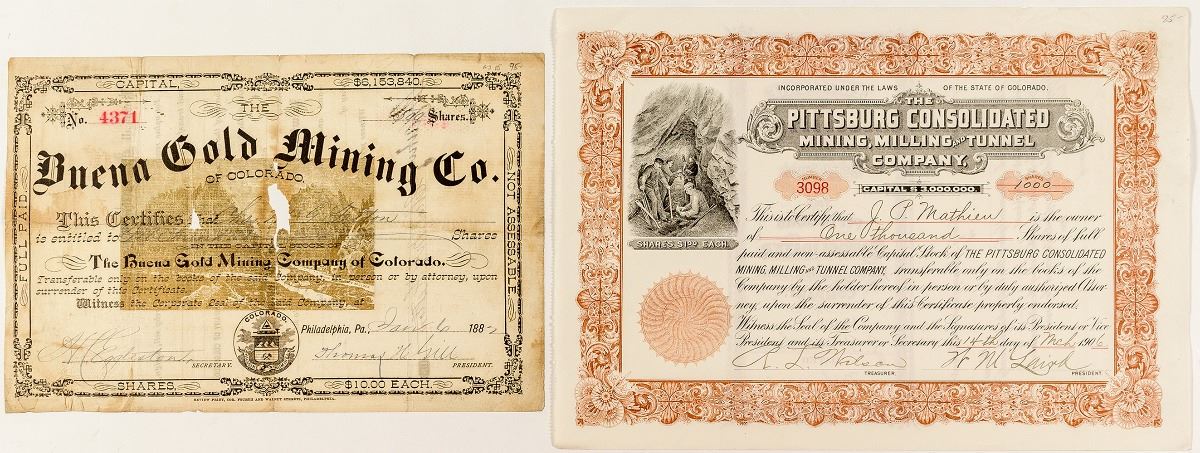 95-
CAPITAL,
$6,153,840.
No. 4371
THE
Shares.
Buena Gold Mining Co.
OF COLORADO.
FULL PAID
NOT ASSESSABLE
This Certifies that
is entitled to
Shares
IN THE CAPITAL STOCK OF
The Buena Gold Mining Company of Colorado.
Transferable only on the books of the Company, in person or by attorney, upon
surrender of this Certificate.
Witness the Corporate Seal of the said Company, at
COLORADO.
Philadelphia, Pa., 188
SECRETARY.
Thomas H. PRESIDENT.
SHARES,
$10.00 EACH.
REVIEW PRINT, COR. FOURTH AND WALNUT STREETS, PHILADELPHIA.
95-
INCORPORATED UNDER THE LAWS OF THE STATE OF COLORADO.
THE
PITTSBURG CONSOLIDATED
MINING, MILLING AND TUNNEL
COMPANY,
NUMBER
3098
CAPITAL $3,000,000.
SHARES
1000
SHARES $1.00 EACH.
This is to Certify that J. P. Mathieu is the owner
of One thousand Shares of full
paid and non-assessable Capital Stock of THE PITTSBURG CONSOLIDATED
MINING, MILLING AND TUNNEL COMPANY, transferable only on the books of the
Company by the holder hereof in person or by duly authorized Attor-
ney, upon the surrender of this Certificate properly endorsed.
Witness the Seal of the Company and the Signatures of its President or Vice
President and its Treasurer or Secretary this 14th day of Mch 1906
R. L. Wilson
TREASURER.
W. M.
PRESIDENT.